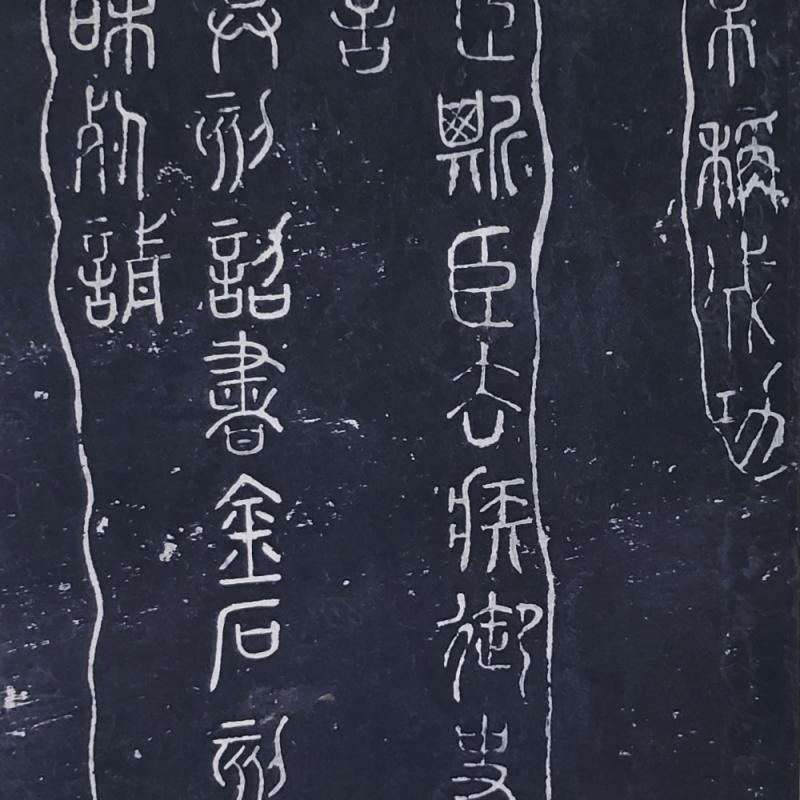 不稱成功
臣斯臣去疾御史
言
具刻詔書金石刻
昧死請